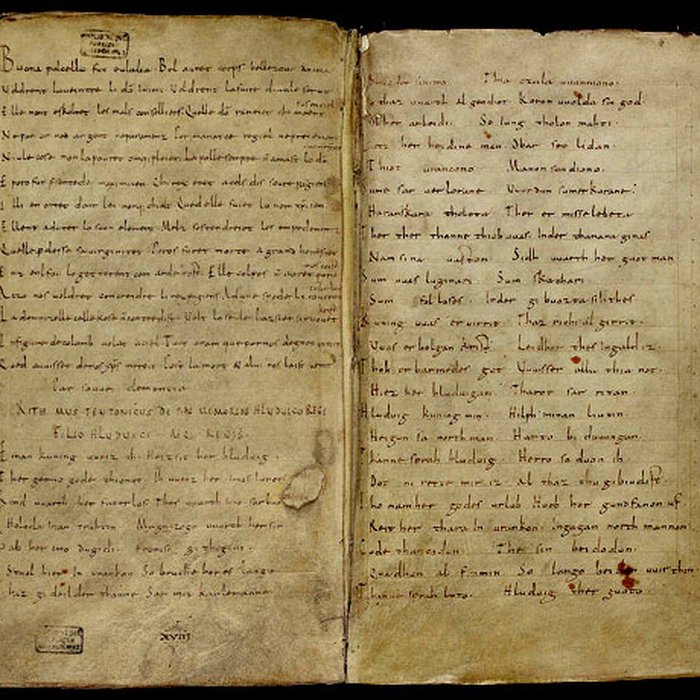 Buona pulcella fut eulalia. Bel auret corps bellezour anima
Voldrent la ueintre li dõ inimi. Voldrent la faire diaule seruir
Elle nont eskoltet les mals conselliers. Quelle dõ raneiet chi maent
Ne por or ned argent ne paramenz. Por manatce regiel ne preiement
Niule cose non la pouret omq; pleier. La polle sempre n amast lo dõ
E poro fut presentede maximiien. Chi rex eret a cels dis soure pagiens
Il li enortet dont lei nonq; chielt. Qued elle fuiet lo nom xp̄iien
Ell ent adunet lo suon element. Melz sostendreiet les empedementz
Quelle perdesse sa uirginitet. Poros furet morte a grand honestet
Enz enl fou lo getterent com arde tost. Elle colpes n auret poro
A czo nos uoldret concreidre li rex pagiens. Ad une spede li roueret
La domnizelle celle kose n contredist. Volt lo seule lazsier si ruouet
In figure de colomb uolat a ciel. Tuit oram que por nos degnet preier
Qued auuisset de nos xp̄s mercit Post la mort & a lui nos laist uenir
Par souue clementia
RITHMUS TEUTONICUS DE PIAE MEMORIAE HLUDUICO REGE
FILIO HLUDUICI REGIS
Einan kuning uueiz ih. Heizsit her hluduig
Ther gerno gode thionot. Ih uueiz her imos lonot
Kind uuarth her faterlos. Thes uuarth imo sar buoz
Holoda inan truhtin Magaczogo uuarth her sin
Gab her imo dugidi. Fronisc githigini
Stuol hier in urankon. So bruche her es lango
Thaz gideilder thanne Sar mit karlemanne
XVIII
Bruoder sinemo Thia czala uuunniono
So thaz uuarth al gendiot Koron uuolda sin god
Ob her arbeidi So iung tholon mahti
Lietz her heidine man Obar seo lidan
Thiot urancono Manon sundiono
Sume sar uerlorane Uuurdun sumerkorane
Haranskara tholota Ther er misselebeta
Ther ther thanne thiob uuas Inder thanana ginas
Nam sina uaston Sidh uuarth her guot man
Sum uuas luginari Sum skachari
Sum fol loses Inder gibuozta sih thes
Kuning uuas eruirrit Thaz richi al girrit
Uuas erbolgan krist Leidhor thes ingald iz
Thoh erbarmedes got Uuisser alla thia not
Hiez her hluduigan Tharot sar ritan
Hluduig kuning min Hilph minan liutin
Heigun sa northman Harto biduuungan
Thanne sprah hluduig Herro so duon ih
Dot ni rette mir iz Al thaz thu gibiudist
Tho nam her godes urlub Huob her gundfanon uf
Reit her thara in urankon Ingagan northmannon
Gode thancodun The sin beidodun
Quadhun al fromin So lango beidon uuir thin
Thanne sprah luto Hluduig ther guoto